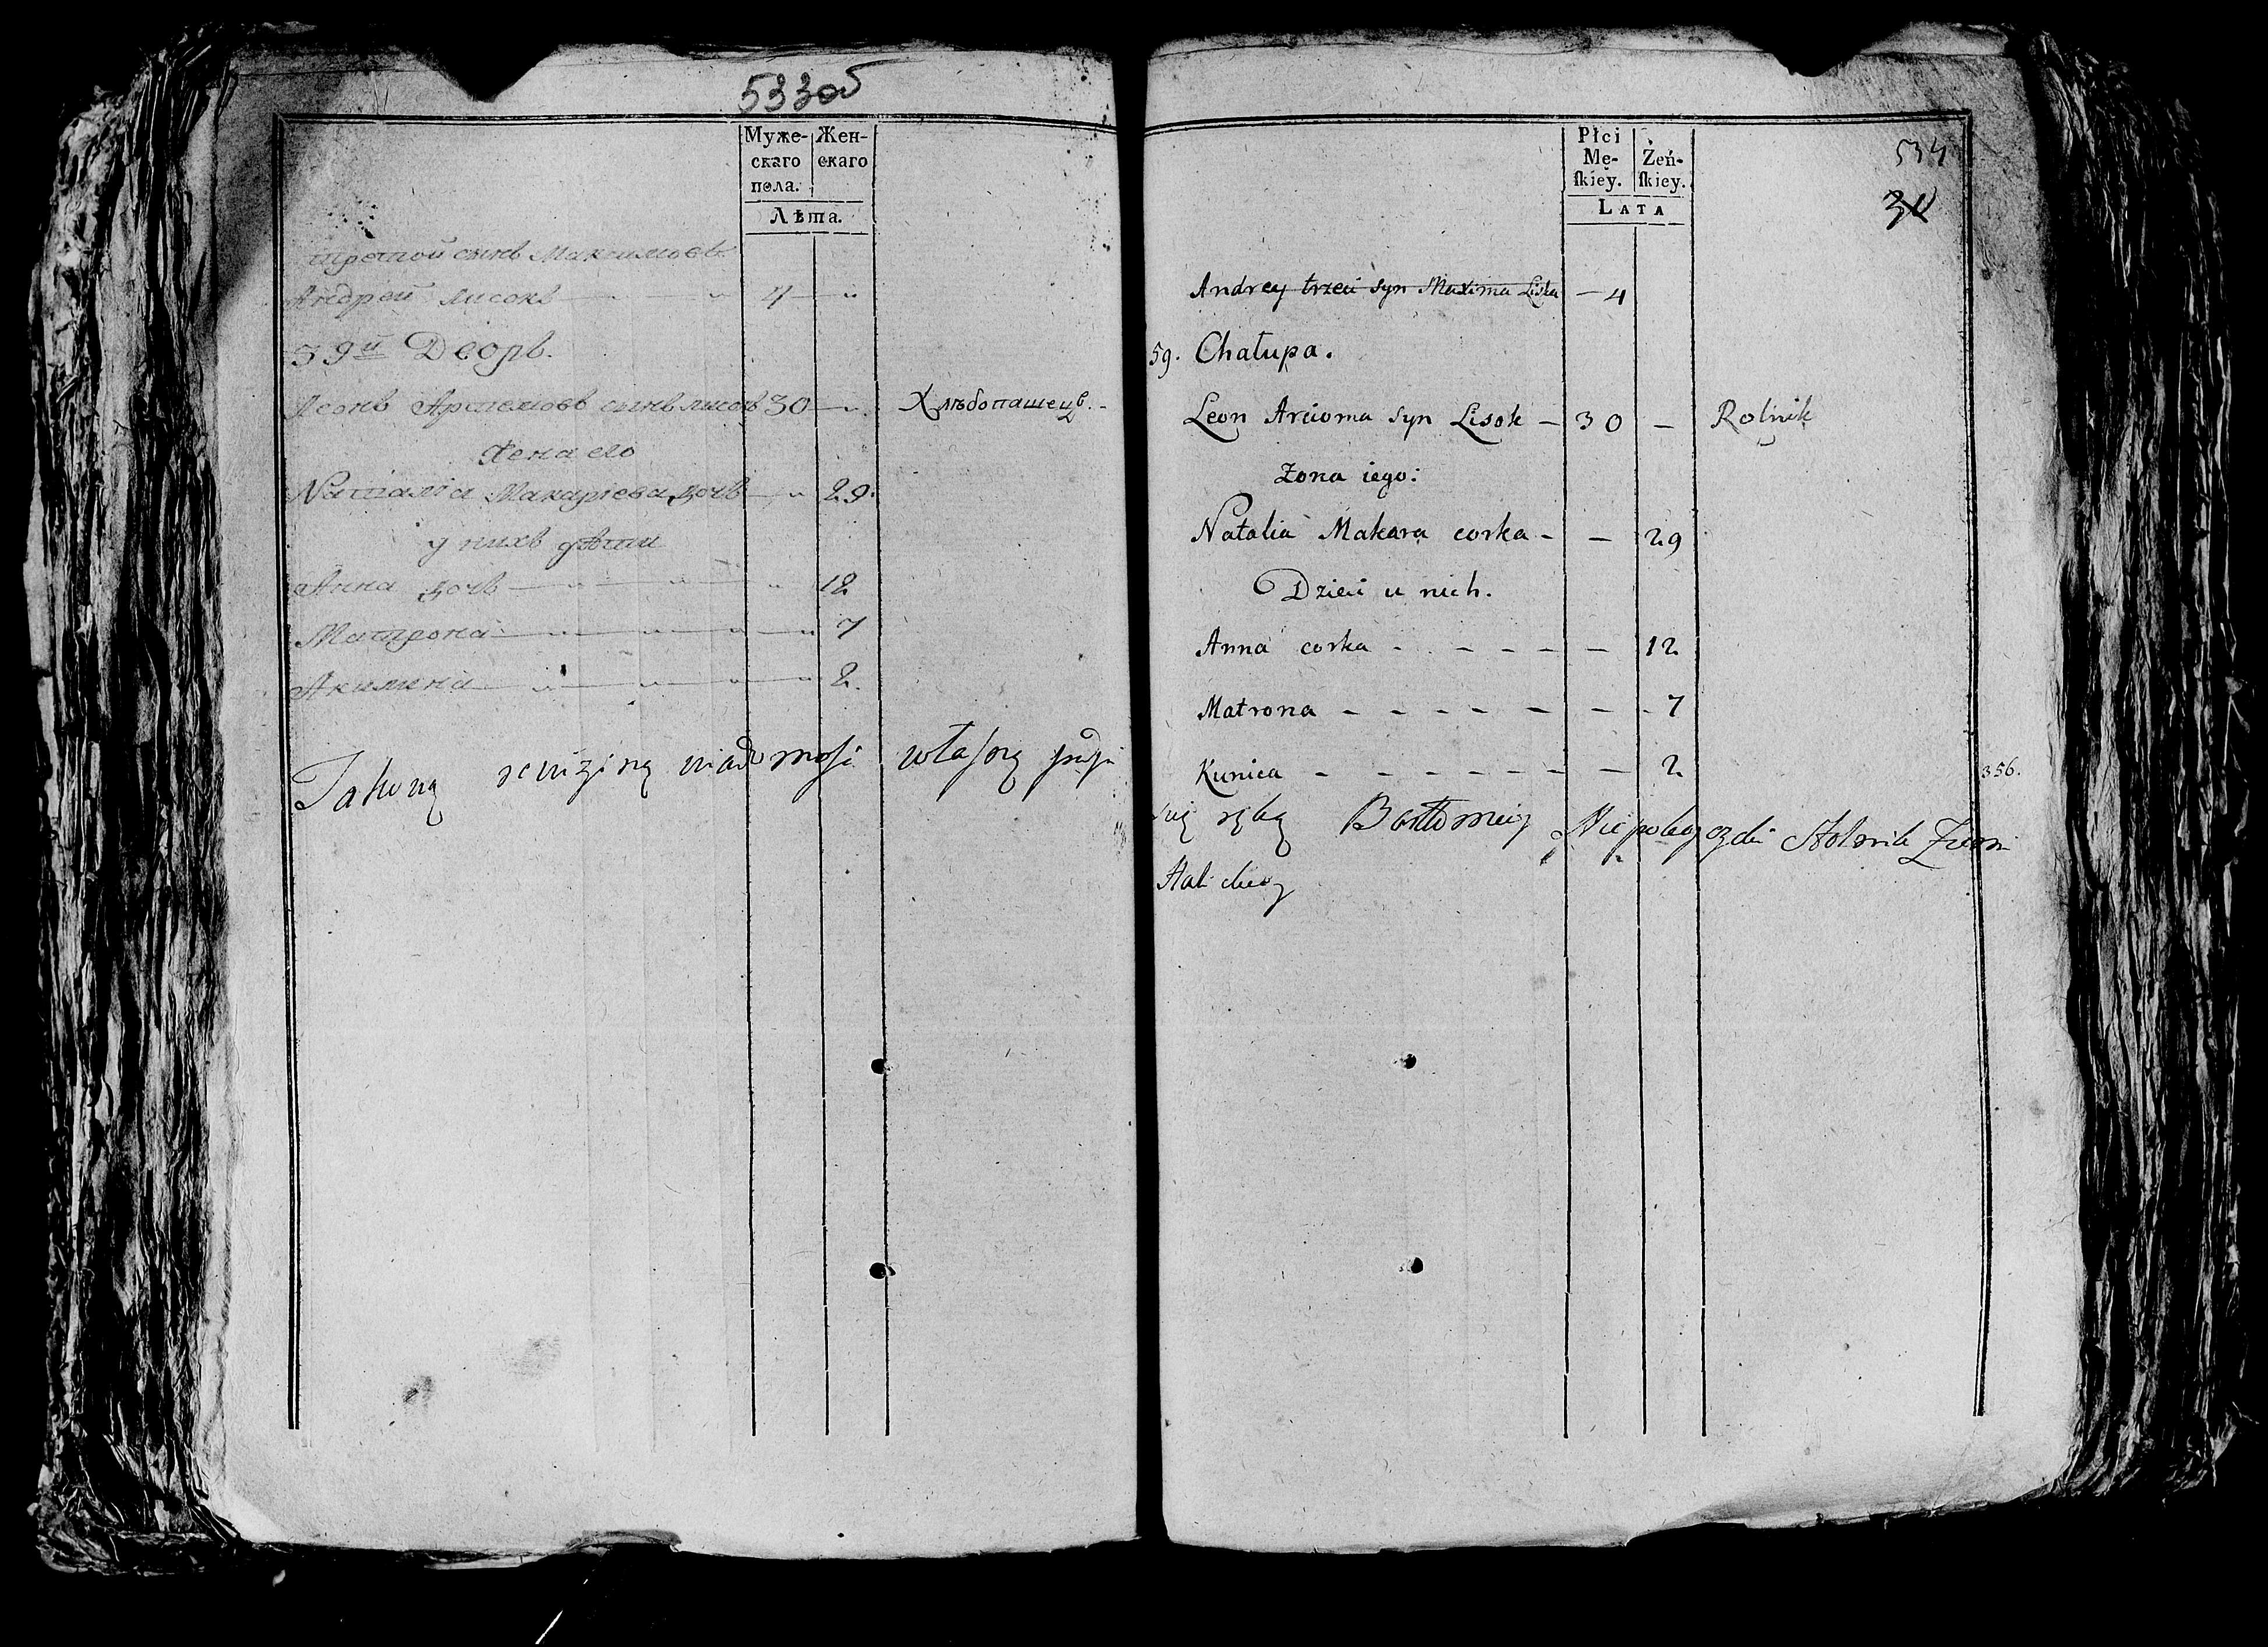 533об
Муже- Жен-
скаго скаго
пола.
Лѣта.
третой сынъ Максимовъ
Андрей лисокъ 4 „
39й Дворъ.
Леонъ Артемовъ сынъ лисокъ 30 — „ Хлѣбопашецъ. -
жена его
Наталіа Макаріева дочь — „ 29.
у нихъ дѣти
Анна дочь — „ — „ — „ 12
Матрона — „ — „ — „ — „ 7
Акилина — „ — „ — „ — „ 2.
Takową rewizing wiadomosć własną podpi
Płci
Mę- Żeń-
skiey. skiey.
LATA
534
30
Andrey trzeci syn Maxima Liska — 4
59. Chałupa.
Leon Arcioma syn Lisok — 30 — Rolnik
Zona iego:
Natalia Makara corka - — 29
Dzieci u nich.
Anna corka - - - - - — 12
Matrona - - - - - - — - 7
Kunica - - - - - - — 2
356.
ręką Bartłomiey Stolnik Ziemi
Halickiey